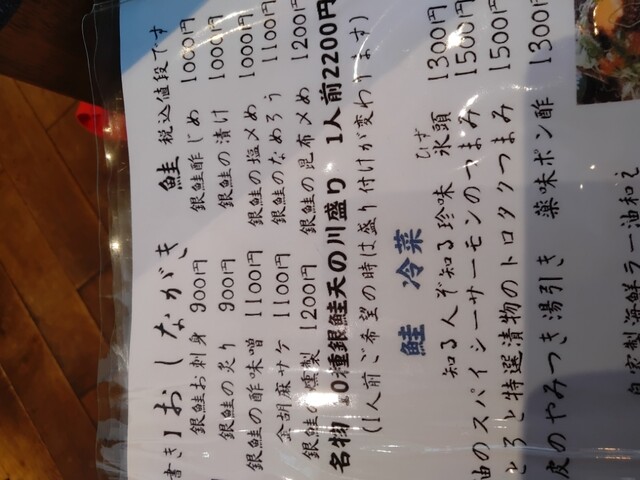 書き】おしながき 鮭 税込値段です
銀鮭お刺身 900円 銀鮭酢じめ 1000円
銀鮭の炙り 900円 銀鮭の漬け 1000円
銀鮭の酢味噌 1100円 銀鮭の塩〆め 1000円
金胡麻サケ 1100円 銀鮭のなめろう 1100円
銀鮭の燻製 1200円 銀鮭の昆布〆め 1200円
名物 10種銀鮭天の川盛り 1人前2200円
(1人前ご希望の時は盛り付けが変わります)
鮭 冷菜
知る人ぞ知る珍味 氷頭 1300円
ひず
油のスパイシーサーモンのつまみ 1500円
とろと特選漬物のトロタクつまみ 1500円
皮のやみつき湯引き 薬味ポン酢 1300円
自家製海鮮ラー油和え